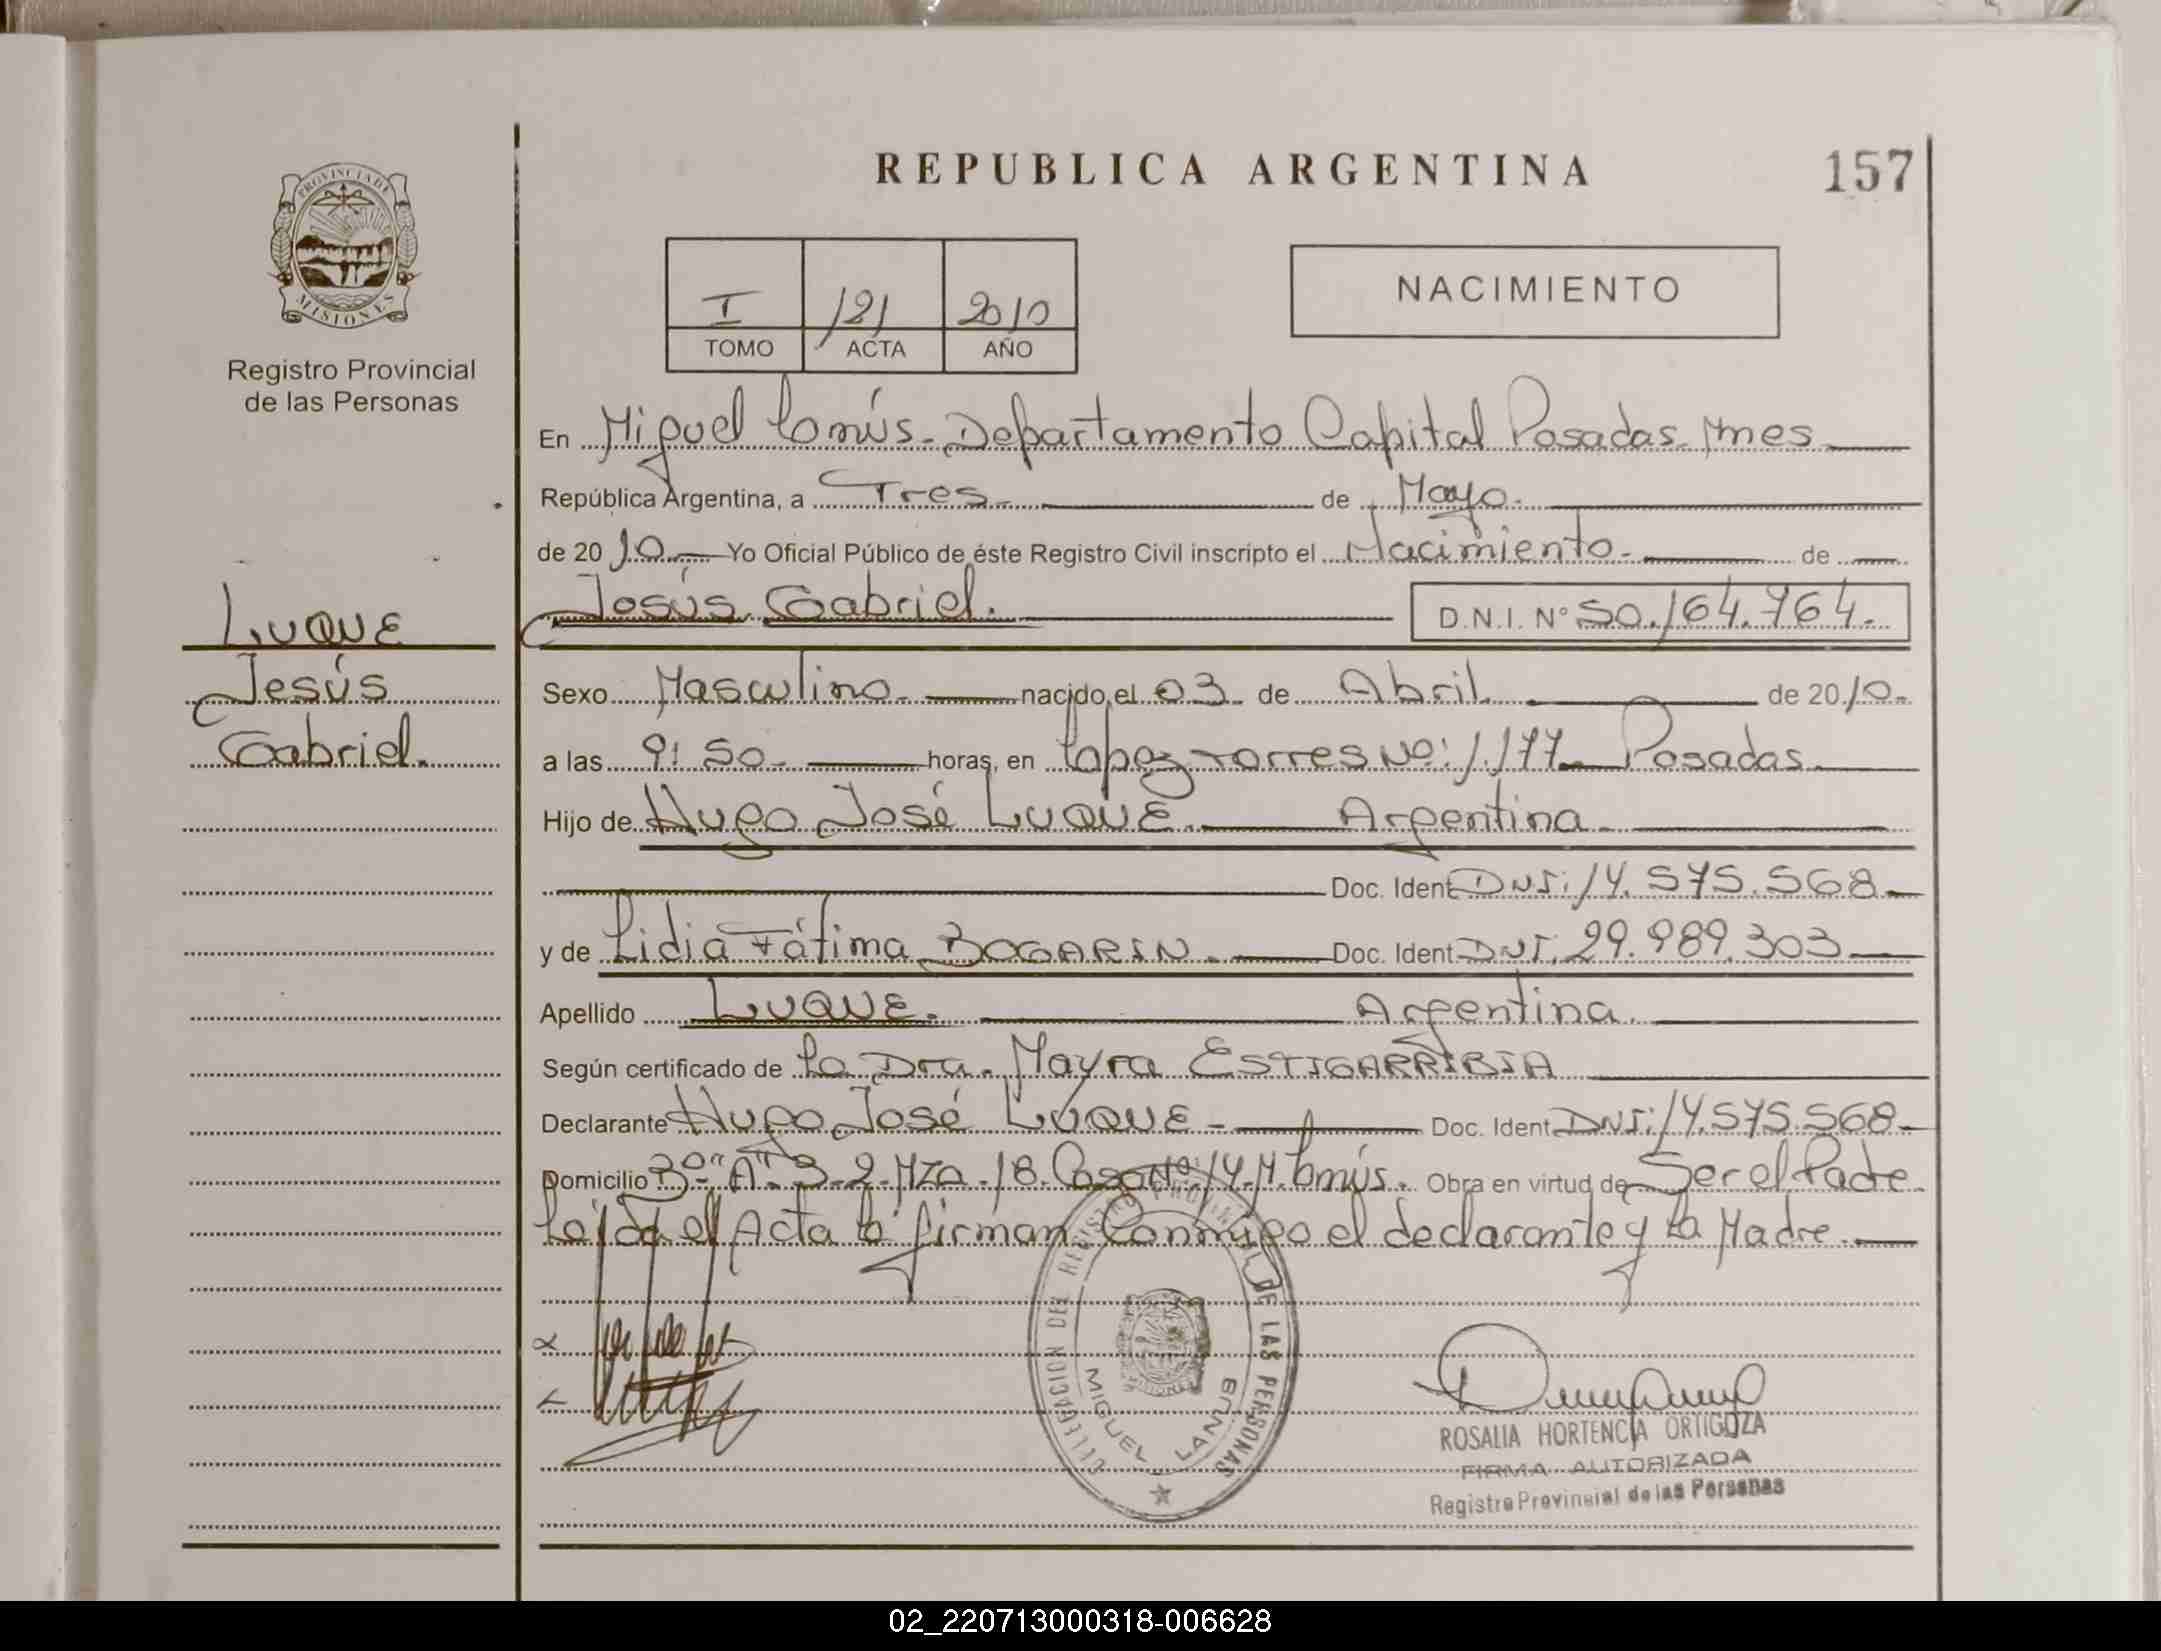 REPUBLICA ARGENTINA
157
PROVINCIA DE
MISIONES
Registro Provincial
de las Personas
I 121 2010
TOMO ACTA AÑO
NACIMIENTO
En Miguel Lanús - Departamento Capital Posadas Mnes
República Argentina, a Tres de Mayo
de 2010 Yo Oficial Público de éste Registro Civil inscripto el Nacimiento de
Jesús Gabriel. D.N.I. Nº 50.164.764.
LUQUE
Jesús
Gabriel.
Sexo Masculino nacido el 03 de Abril de 2010.
a las 9:50 horas, en López Torres Nº: 1.177 Posadas
Hijo de Hugo José LUQUE Argentina
Doc. Ident DNI: 14.575.568
y de Lidia Fátima BOGARIN Doc. Ident DNI. 29.989.303
Apellido LUQUE. Argentina
Según certificado de la Dra. Mayra ESTIGARRIBIA
Declarante Hugo José LUQUE Doc. Ident DNI: 14.575.568
Domicilio Bº "A" 3-2 Mza. 18. Casa Nº 14. M. Lanús. Obra en virtud de Ser el Padre
Leída el Acta la firman Conmigo el declarante y la Madre.
DELEGACION DEL REGISTRO PROVINCIAL DE LAS PERSONAS
MIGUEL LANUS
ROSALIA HORTENCIA ORTIGOZA
FIRMA AUTORIZADA
Registro Provincial de las Personas
02_220713000318-006628